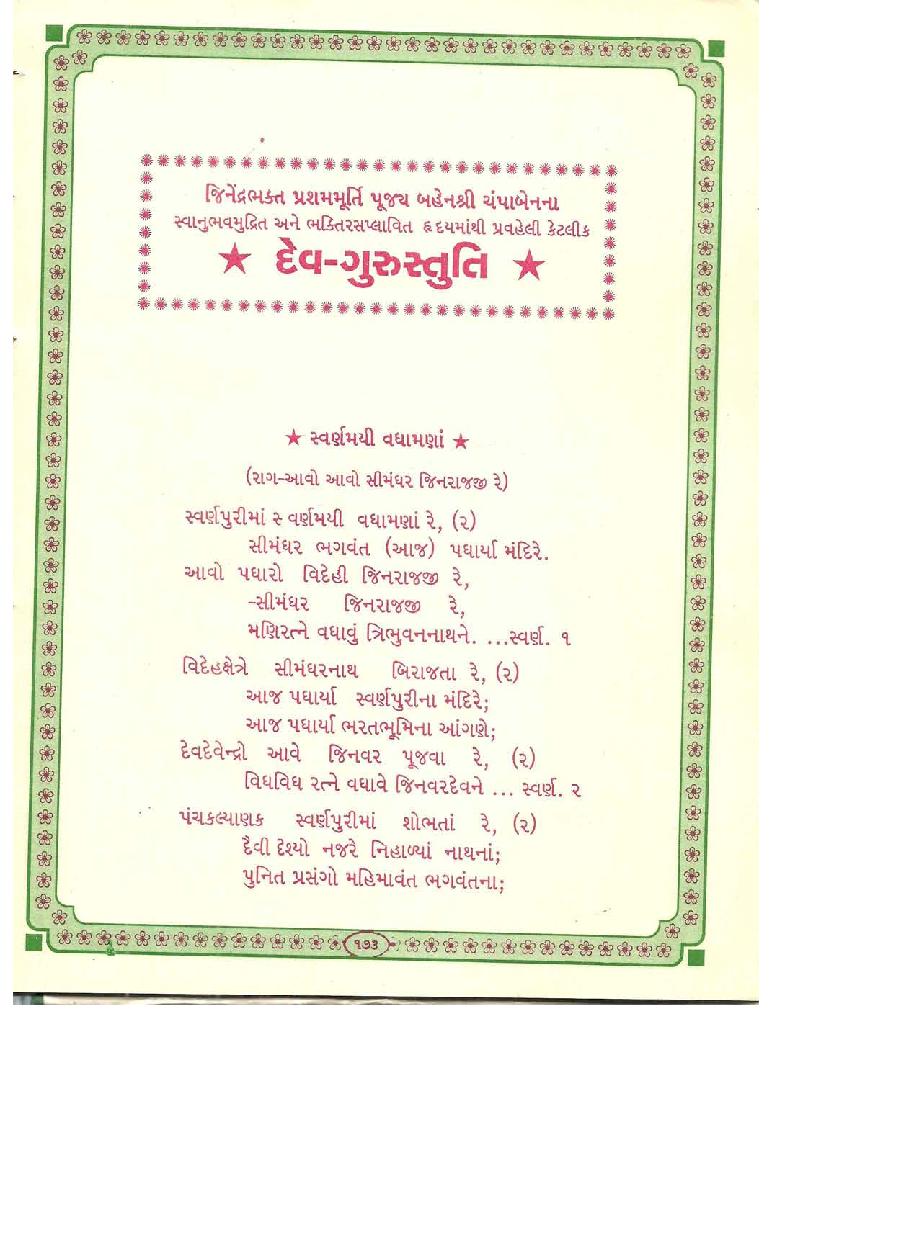 જિનેંદ્રભક્ત પ્રશમમૂર્તિ પૂજ્ય બહેનશ્રી ચંપાબેનના
સ્વાનુભવમુદ્રિત અને ભક્તિરસપ્લાવિત હૃદયમાંથી પ્રવહેલી કેટલીક
★ દેવ-ગુરુસ્તુતિ ★
★ સ્વર્ણમયી વધામણાં ★
(રાગ-આવો આવો સીમંધર જિનરાજજી રે)
સ્વર્ણપુરીમાં સ્વર્ણમયી વધામણાં રે, (૨)
સીમંધર ભગવંત (આજ) પધાર્યા મંદિરે.
આવો પધારો વિદેહી જિનરાજજી રે,
-સીમંધર જિનરાજજી રે,
મણિરત્ને વધાવું ત્રિભુવનનાથને. ...સ્વર્ણ. ૧
વિદેહક્ષેત્રે સીમંધરનાથ બિરાજતા રે, (૨)
આજ પધાર્યા સ્વર્ણપુરીના મંદિરે;
આજ પધાર્યા ભરતભૂમિના આંગણે;
દેવદેવેન્દ્રો આવે જિનવર પૂજવા રે, (૨)
વિધવિધ રત્ને વધાવે જિનવરદેવને ... સ્વર્ણ. ૨
પંચકલ્યાણક સ્વર્ણપુરીમાં શોભતાં રે, (૨)
દૈવી દૃશ્યો નજરે નિહાળ્યાં નાથનાં;
પુનિત પ્રસંગો મહિમાવંત ભગવંતના;
૧૭૩